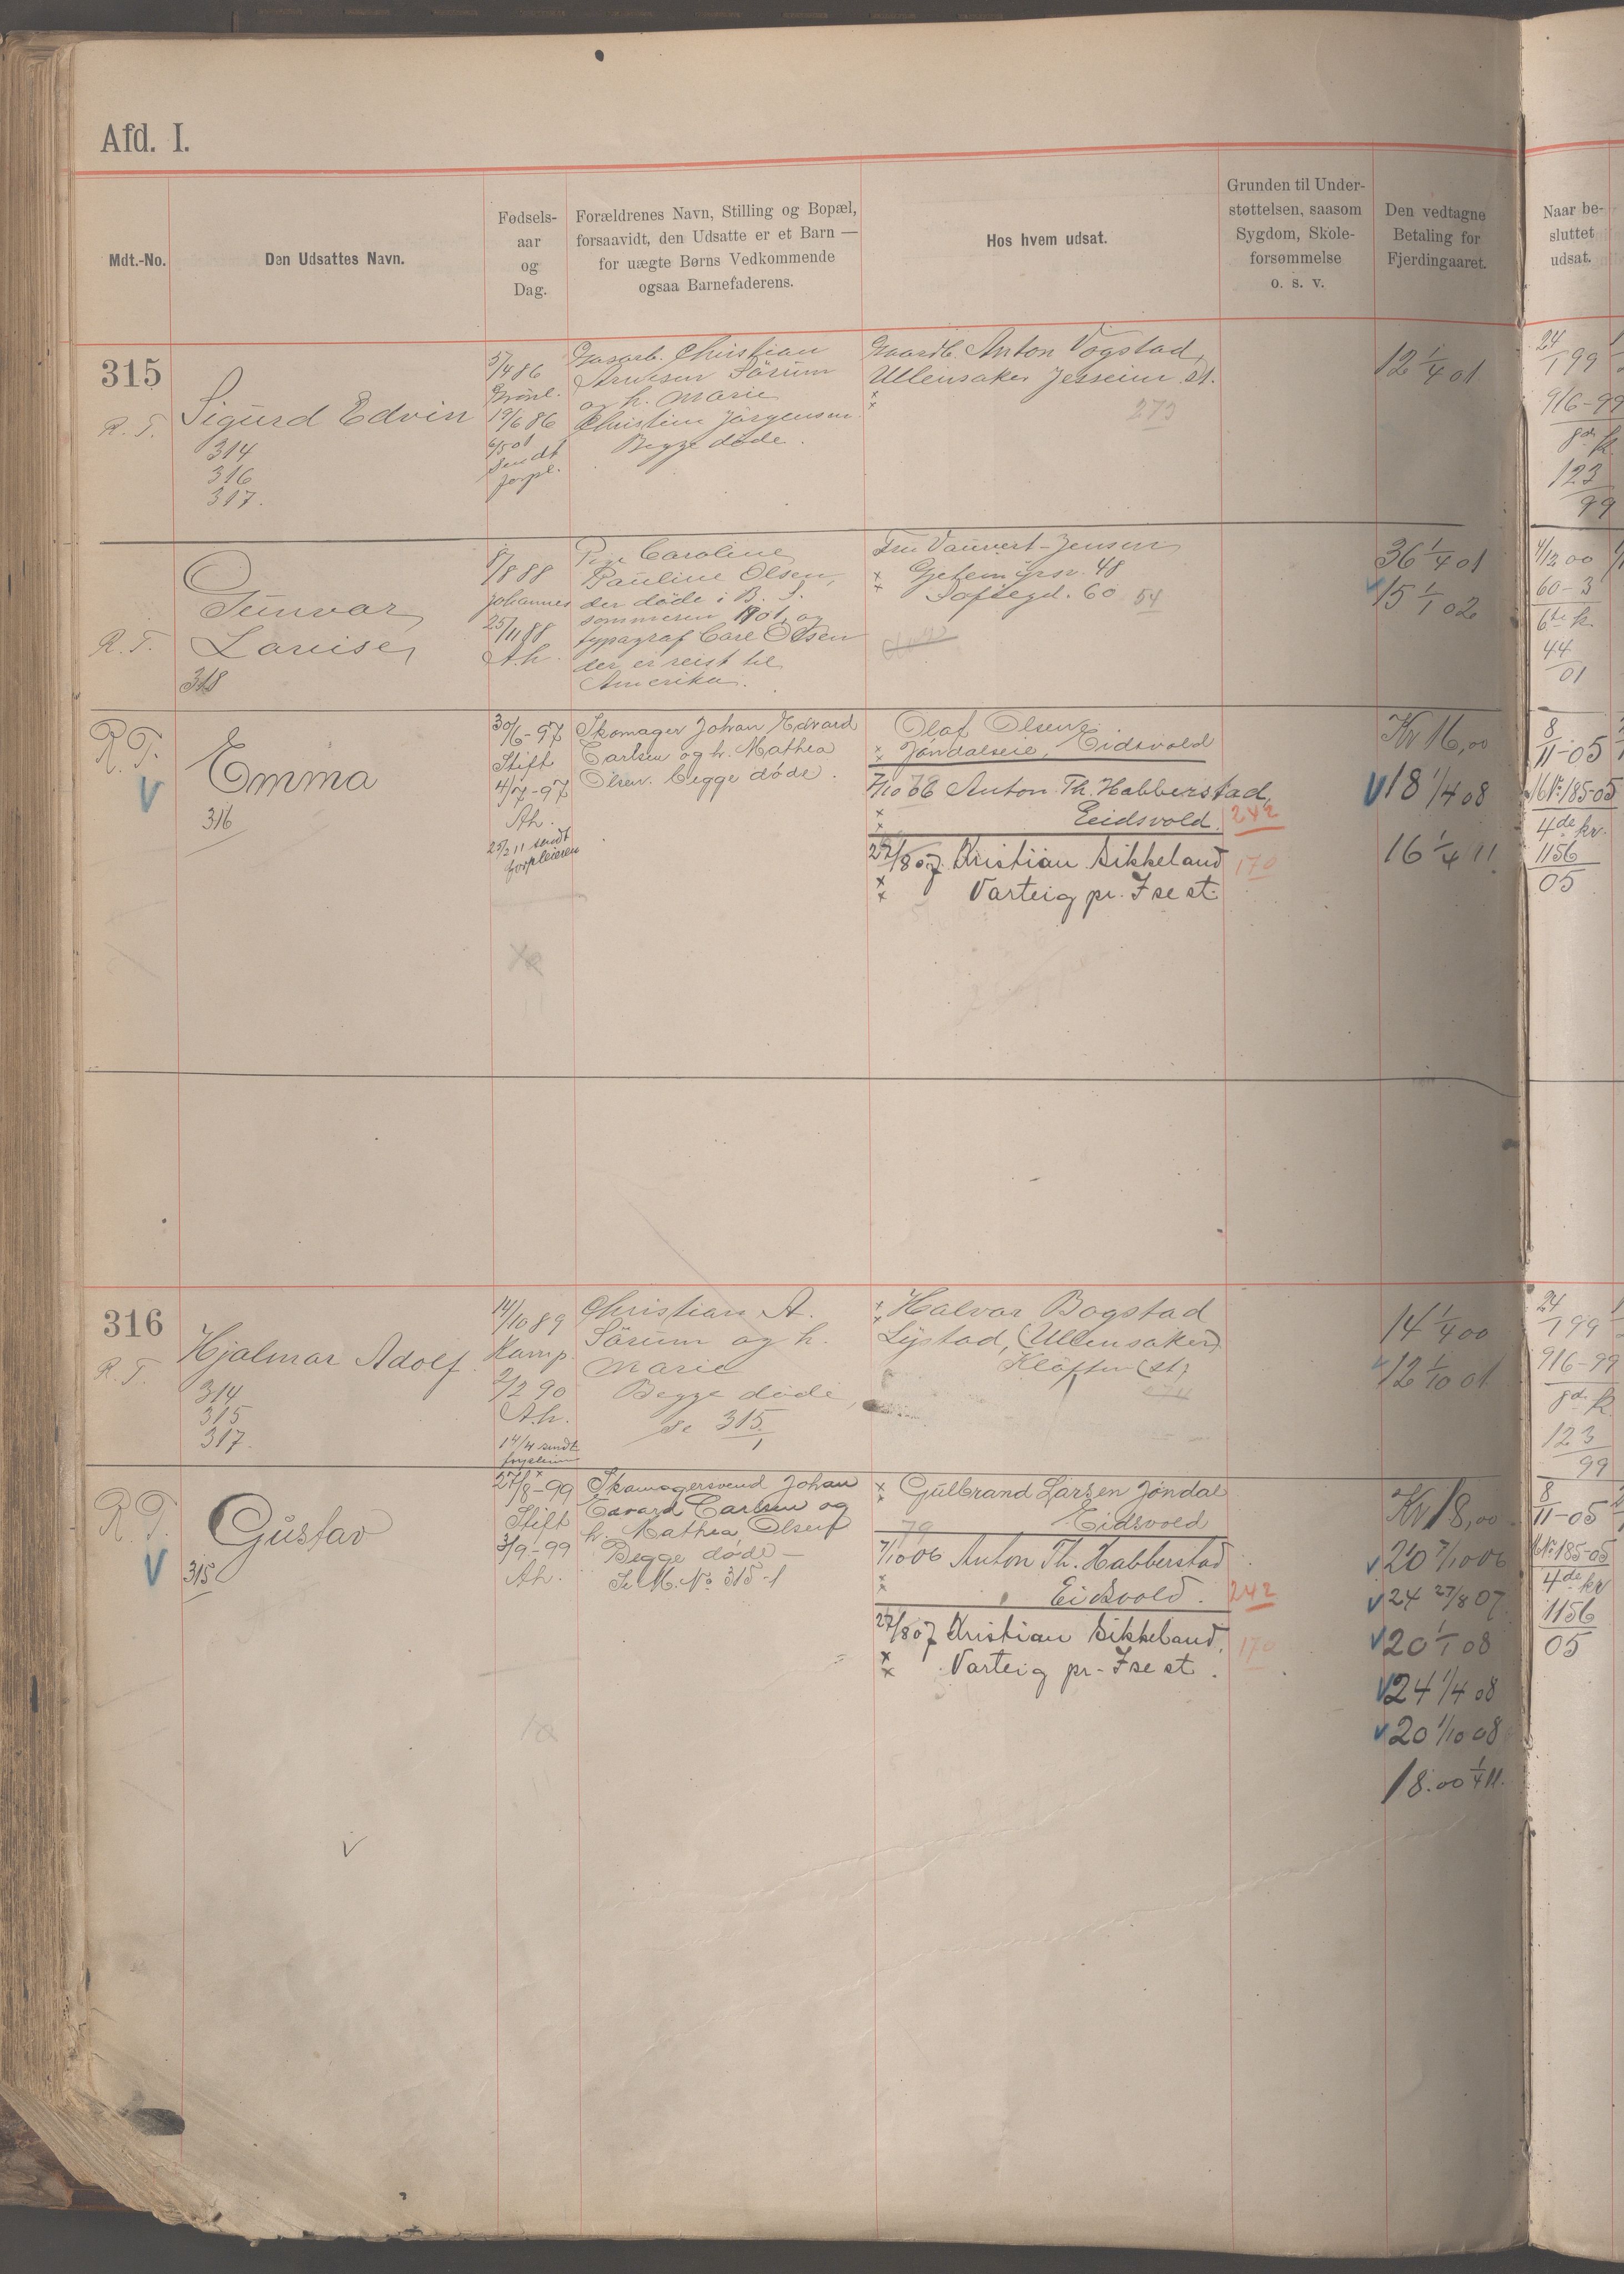 Afd. I.
Mdt.-No.
Den Udsattes Navn.
Fødsels-
aar
og
Dag.
Forældrenes Navn, Stilling og Bopæl,
forsaavidt, den Udsatte er et Barn —
for uægte Børns Vedkommende
ogsaa Barnefaderens.
Hos hvem udsat.
Grunden til Under-
støttelsen, saasom
Sygdom, Skole-
forsømmelse
o. s. v.
Den vedtagne
Betaling for
Fjerdingaaret.
Naar be-
sluttet
udsat.
315
R. T.
Sigurd Edvin
314
316
317.
5/4 86
Grönl.
19/6 86
6/5 01
Sendt
forpl.
Christian
Arntsen Sörum
og h. Marie
Christine Jörgensen
Begge döde.
Gaardb. Anton Vogstad,
Ullensaker Jesseim st.
273
12 1/4 01
24
1 99
916-99
123
99
R. T.
Gunvor
Lovise
318
8/8 88
Johannes
25/11 88
Ah.
Pige Caroline
Pauline Olsen,
der döde i B. S.
sommeren 1901, og
typograf Carl Olsen
der er reist til
Amerika.
Fru Vauvert-Jensen
Geitemyrsv. 48
Toftegd. 60 54
36 1/4 01
15 1/1 02
4/12 00
60-3
6te k.
44
01
R. T.
Emma
316
30/6-97
Stift
4/7-97
Ah.
25/2 11 sendt
forpleieren
Skomager Johan Edvard
Carlsen og h. Mathea
Olsen. begge döde.
Olaf Olsen
Jöndalseie, Eidsvold
7/10 06 Anton Th. Habberstad,
Eidsvold. 242
27/8 07 Kristian Sikkeland 170
Varteig pr. Ise st.
Kr 16,00
18 1/4 08
16 1/4 11
8
11-05
No 185-05
4de kr.
1156
05
316
R. T.
Hjalmar Adolf
314
315
317.
14/10 89
Kamp.
2/2 90
Ah.
14/4 sendt
Christian A.
Sörum og h.
Marie
Begge döde,
se 315.
1
Halvor Bogstad
Lystad, (Ullensaker)
Klöften (st)
14 1/4 00
12 1/10 01
24
1 99
916-99
123
99
R. T.
Gustav
315
27/8-99
Stift
3/9-99
Ah.
Skomagersvend Johan
Edvard Carlsen og
h. Mathea Olsen
Begge döde —
Se M. No 315-1
Gulbrand Larsen Jöndal
79 Eidsvold
7/10 06 Anton Th. Habberstad
Eidsvold. 242
27/8 07 Kristian Sikkeland, 170
Varteig pr. Ise st.
Kr 18,00
20 7/10 06
24 27/8 07
20 1/1 08
24 1/4 08
20 1/10 08
18.00 1/4 11.
8
11-05
No 185-05
4de kr
1156
05